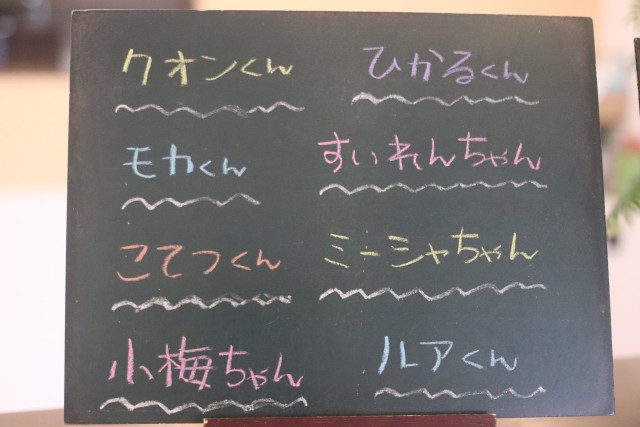 クオンくん
ひかるくん
モカくん
すいれんちゃん
こてつくん
ミーシャちゃん
小梅ちゃん
ルアくん